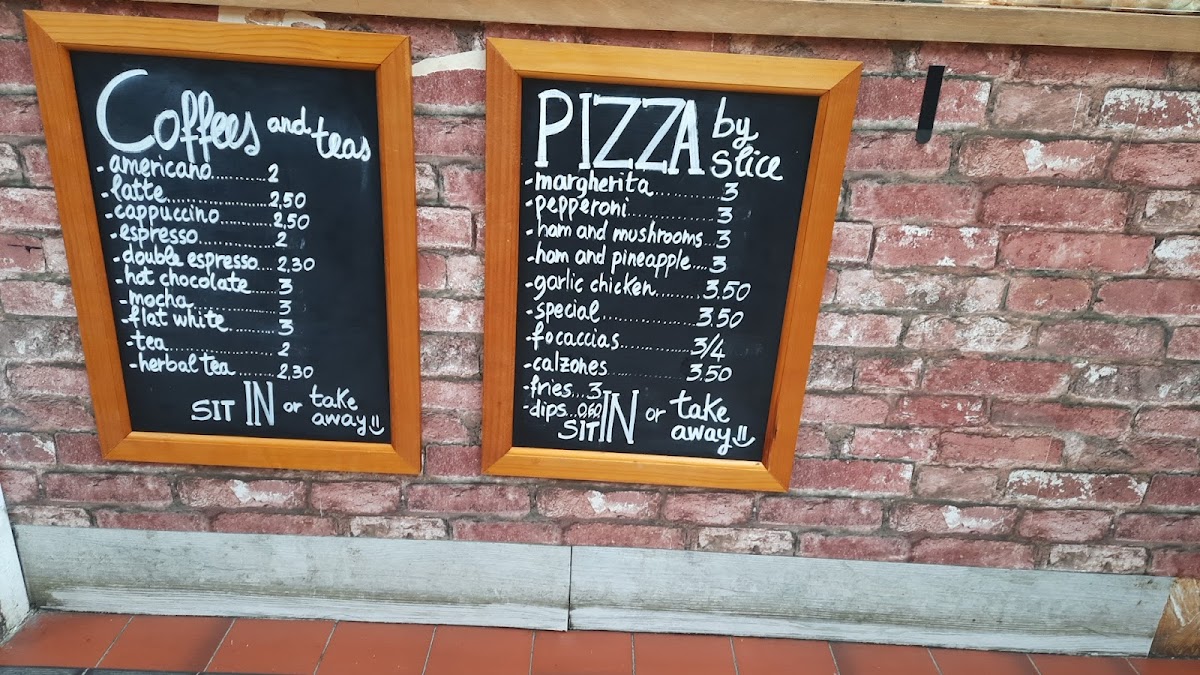 Coffees and teas
- americano..........2
- latte....................2,50
- cappuccino..........2,50
- espresso..............2
- double espresso....2,30
- hot chocolate.....3
- mocha................3
- flat white..........3
- tea......................2
- herbal tea........2,30
SIT IN or take away
PIZZA by slice
- margherita...........3
- pepperoni..............3
- ham and mushrooms...3
- ham and pineapple....3
- garlic chicken.........3.50
- special..................3.50
- focaccias..............3/4
- calzones................3.50
- fries...3
- dips...0,60
SIT IN or take away